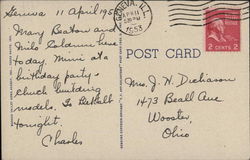 Geneva, 11 April 1953
Mary Beaton and
Milo Coldren here
today. Mimi at a
birthday party -
Chuck building
models. To DeKalb
tonight.
Charles
GENEVA, ILL.
APR 11
5 PM
1953
2 CENTS 2
POST CARD
Mrs. J. H. Dickason
1473 Beall Ave
Wooster,
Ohio